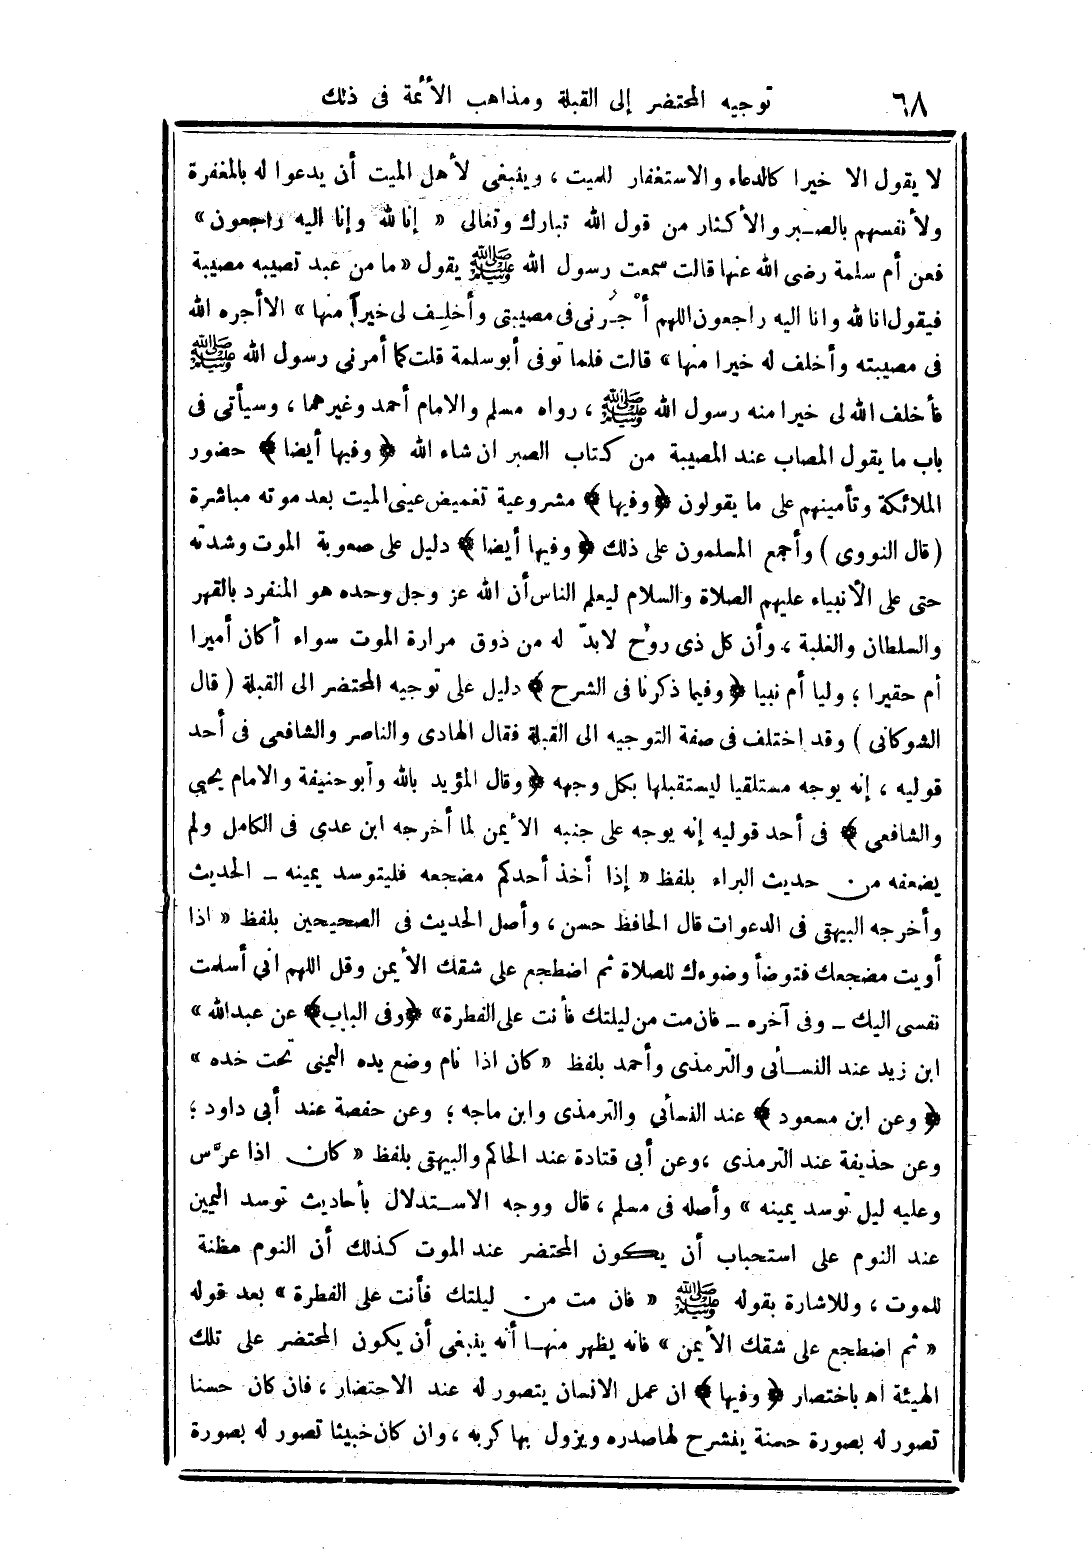 ٦٨ توجيه المحتضر إلى القبلة ومذاهب الأئمة فى ذلك
لا يقول الا خيرا كالدعاء والاستغفار للميت ، وينبغى لأهل الميت أن يدعوا له بالمغفرة
ولأنفسهم بالصبر والأكثار من قول الله تبارك وتعالى « إنا لله وإنا اليه راجعون »
فعن أم سلمة رضى الله عنها قالت سمعت رسول الله ﷺ يقول « ما من عبد تصيبه مصيبة
فيقول انا لله وانا اليه راجعون اللهم أْجُرنى فى مصيبتى وأخلِف لى خيراً منها » الا أجره الله
فى مصيبته وأخلف له خيرا منها » قالت فلما توفى أبو سلمة قلت كما أمرنى رسول الله ﷺ
فأخلف الله لى خيرا منه رسول الله ﷺ ، رواه مسلم والامام أحمد وغيرهما ، وسيأتى فى
باب ما يقول المصاب عند المصيبة من كتاب الصبر ان شاء الله ﴿ وفيها أيضا ﴾ حضور
الملائكة وتأمينهم على ما يقولون ﴿ وفيها ﴾ مشروعية تغميض عينى الميت بعد موته مباشرة
( قال النووى ) وأجمع المسلمون على ذلك ﴿ وفيها أيضا ﴾ دليل على صعوبة الموت وشدته
حتى على الأنبياء عليهم الصلاة والسلام ليعلم الناس أن الله عز وجل وحده هو المنفرد بالقهر
والسلطان والغلبة ، وأن كل ذى روح لابدّ له من ذوق مرارة الموت سواء أكان أميرا
أم حقيرا ؛ وليا أم نبيا ﴿ وفيما ذكرنا فى الشرح ﴾ دليل على توجيه المحتضر الى القبلة ( قال
الشوكانى ) وقد اختلف فى صفة التوجيه الى القبلة فقال الهادى والناصر والشافعى فى أحد
قوليه ، إنه يوجه مستلقيا ليستقبلها بكل وجهه ﴿ وقال المؤيد بالله وأبو حنيفة والامام يحيى
والشافعى ﴾ فى أحد قوليه إنه يوجه على جنبه الأيمن لما أخرجه ابن عدى فى الكامل ولم
يضعفه من حديث البراء بلفظ « إذا أخذ أحدكم مضجعه فليتوسد يمينه ـ الحديث
وأخرجه البيهقى فى الدعوات قال الحافظ حسن ، وأصل الحديث فى الصحيحين بلفظ « اذا
أويت مضجعك فتوضأ وضوءك للصلاة ثم اضطجع على شقك الأيمن وقل اللهم انى أسلمت
نفسى اليك ـ وفى آخره ـ فان مت من ليلتك فأنت على الفطرة» ﴿وفى الباب﴾ عن عبدالله »
ابن زيد عند النسائى والترمذى وأحمد بلفظ « كان اذا نام وضع يده اليمنى تحت خده »
﴿ وعن ابن مسعود ﴾ عند النسأئي والترمذى وابن ماجه ؛ وعن حفصة عند أبى داود ؛
وعن حذيفة عند الترمذى ، وعن أبى قتادة عند الحاكم والبيهقى بلفظ « كان اذا عرَّس
وعليه ليل توسد يمينه » وأصله فى مسلم ، قال ووجه الاستدلال بأحاديث توسد اليمين
عند النوم على استحباب أن يكون المحتضر عند الموت كذلك أن النوم مظنة
للموت ، وللاشارة بقوله ﷺ « فان مت من ليلتك فأنت على الفطرة » بعد قوله
« ثم اضطجع على شقك الأيمن » فانه يظهر منها أنه ينبغى أن يكون المحتضر على تلك
الهيئة اهـ باختصار ﴿ وفيها ﴾ ان عمل الانسان يتصور له عند الاحتضار ، فان كان حسنا
تصور له بصورة حسنة ينشرح لها صدره ويزول بها كربه ، وان كان خبيثا تصور له بصورة